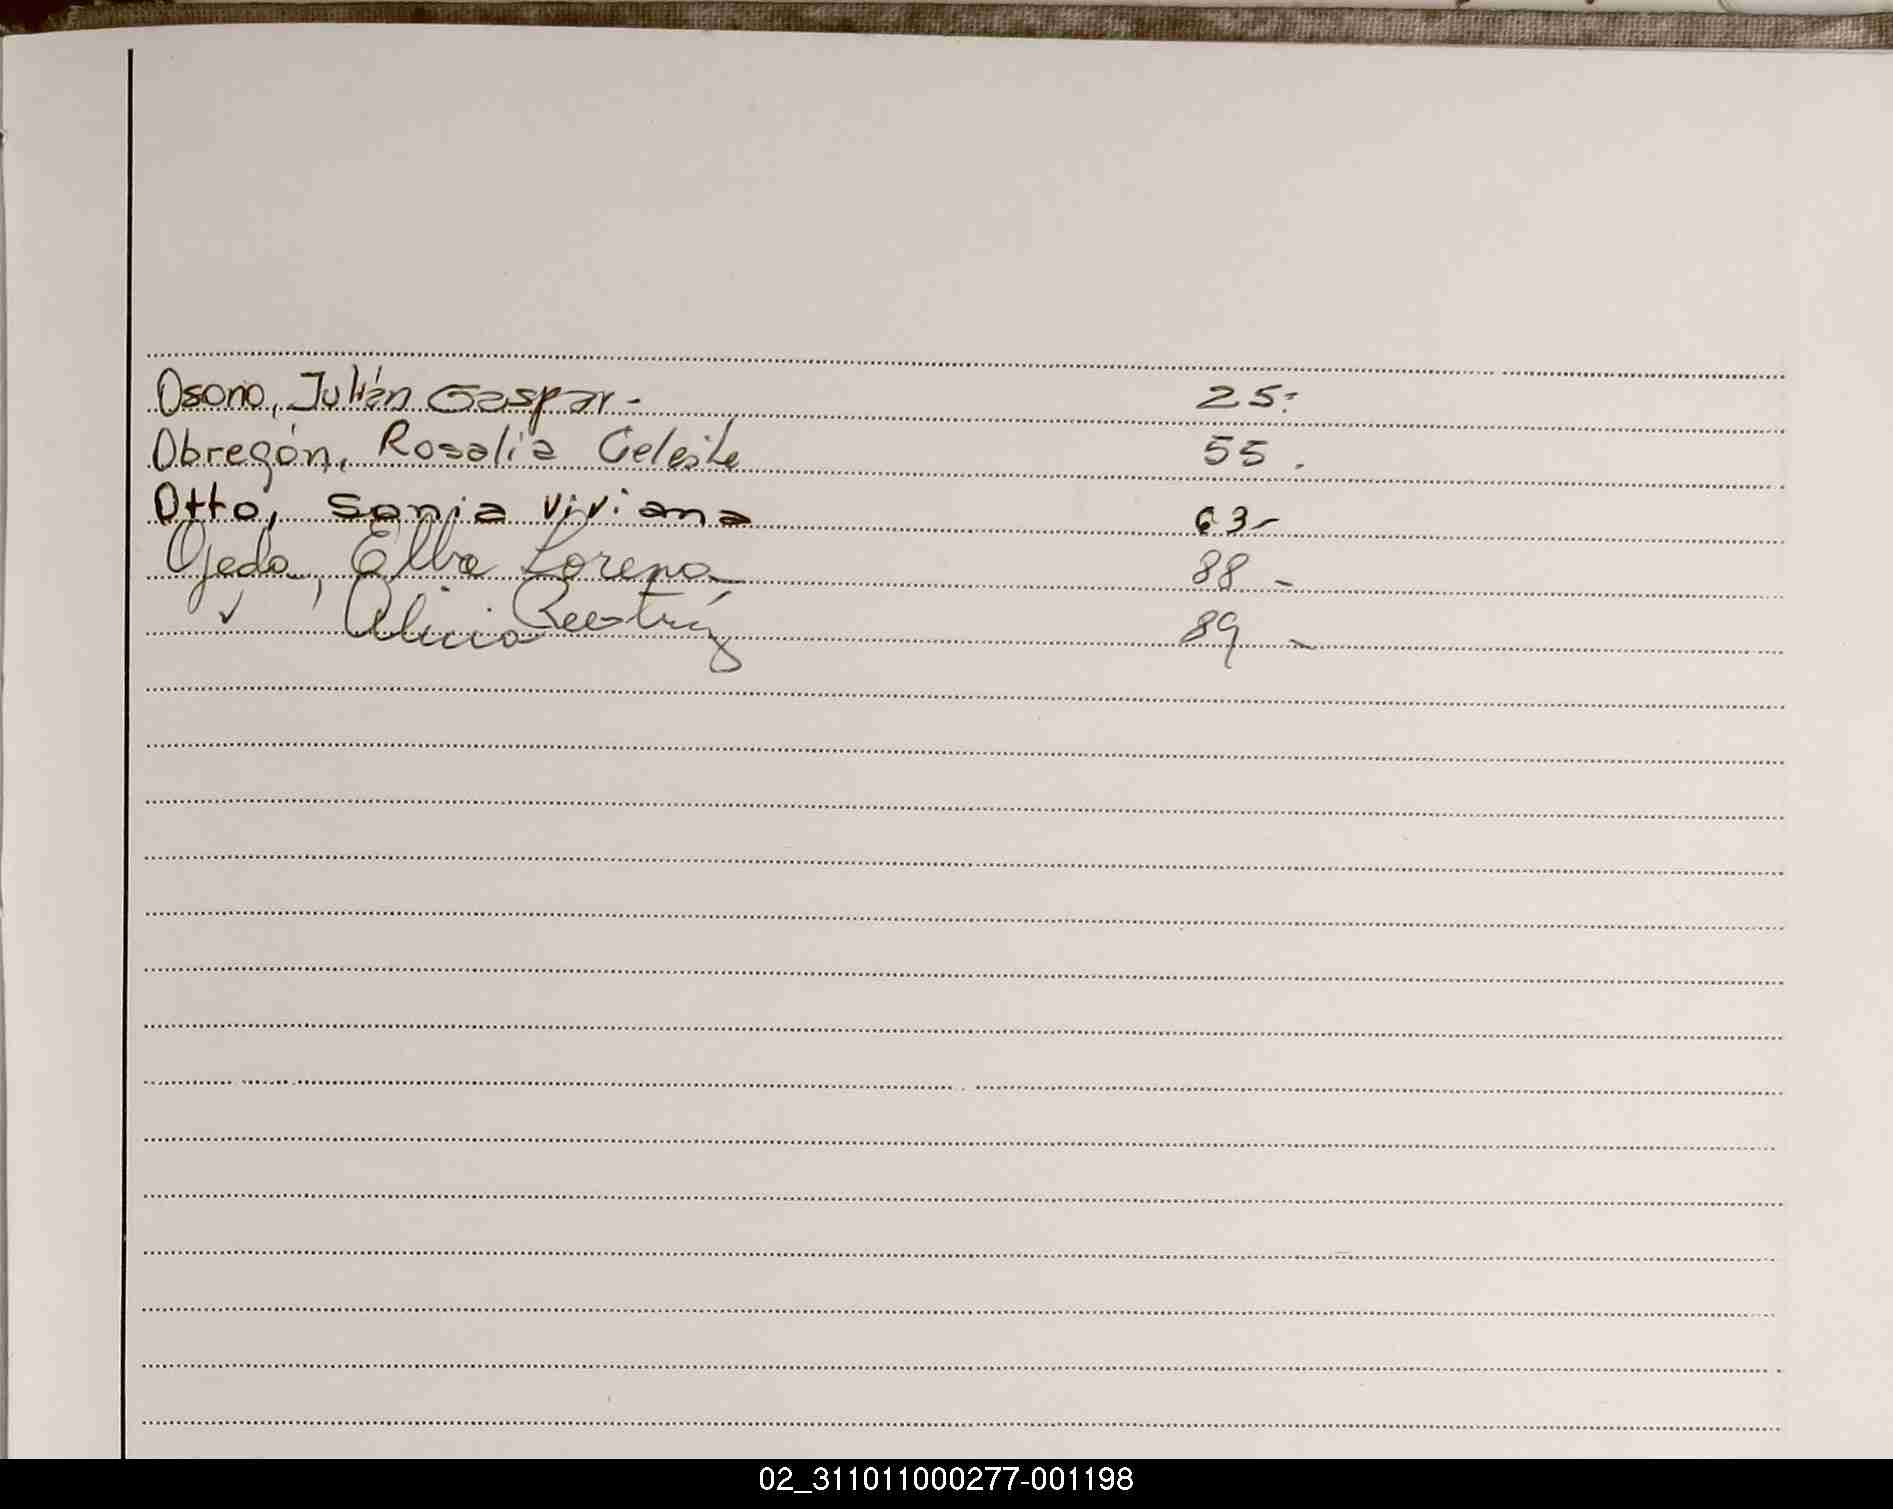 Osono, Julián Gaspar - 25:
Obregón, Rosalía Celeste 55.
Otto, Sonia Viviana 63-
Ojeda, Elba Lorena 88-
✓ Alicia Beatríz 89-
02_311011000277-001198